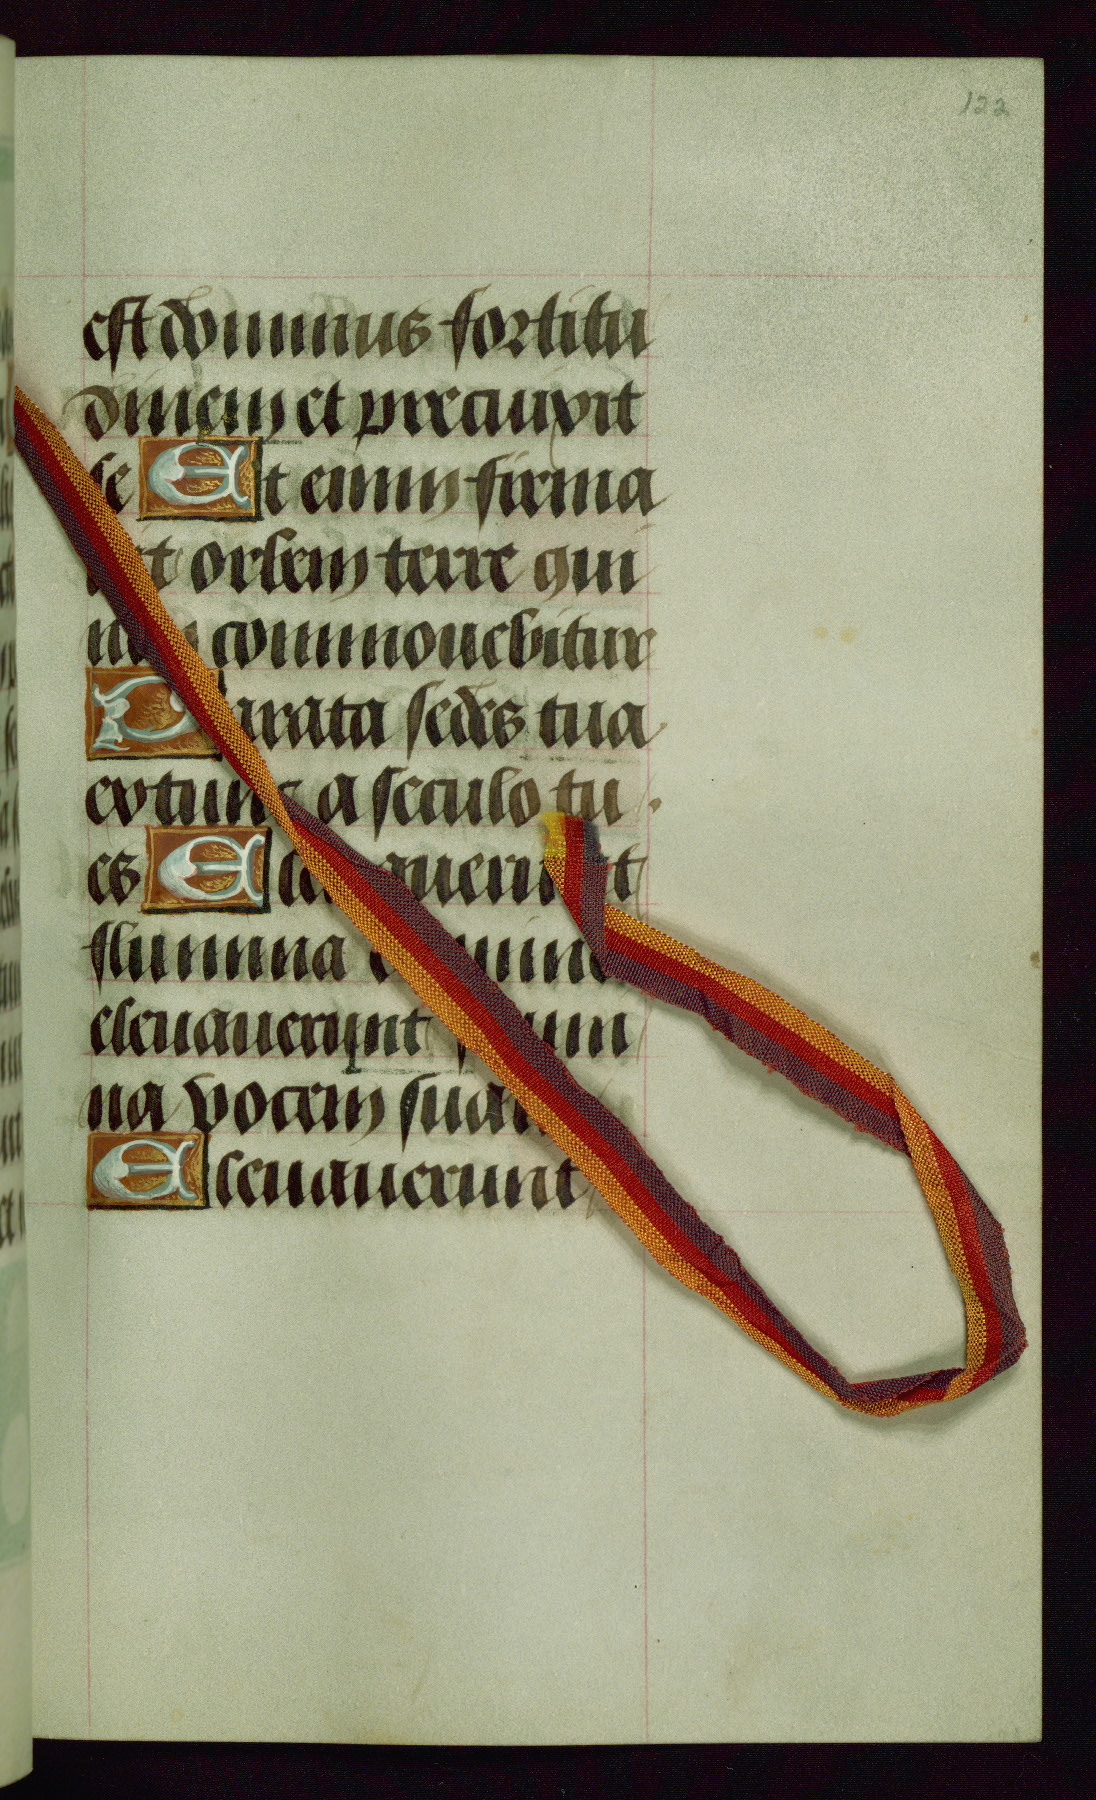 122
est dominus fortitu
dinem et precinxit
se Et enim firma
orbem terre qui
commouebitur
Parata sedes tua
ex tunc a seculo tu
es Eleuauerunt
flumina
eleuauerunt
na vocem suam
Eleuauerunt